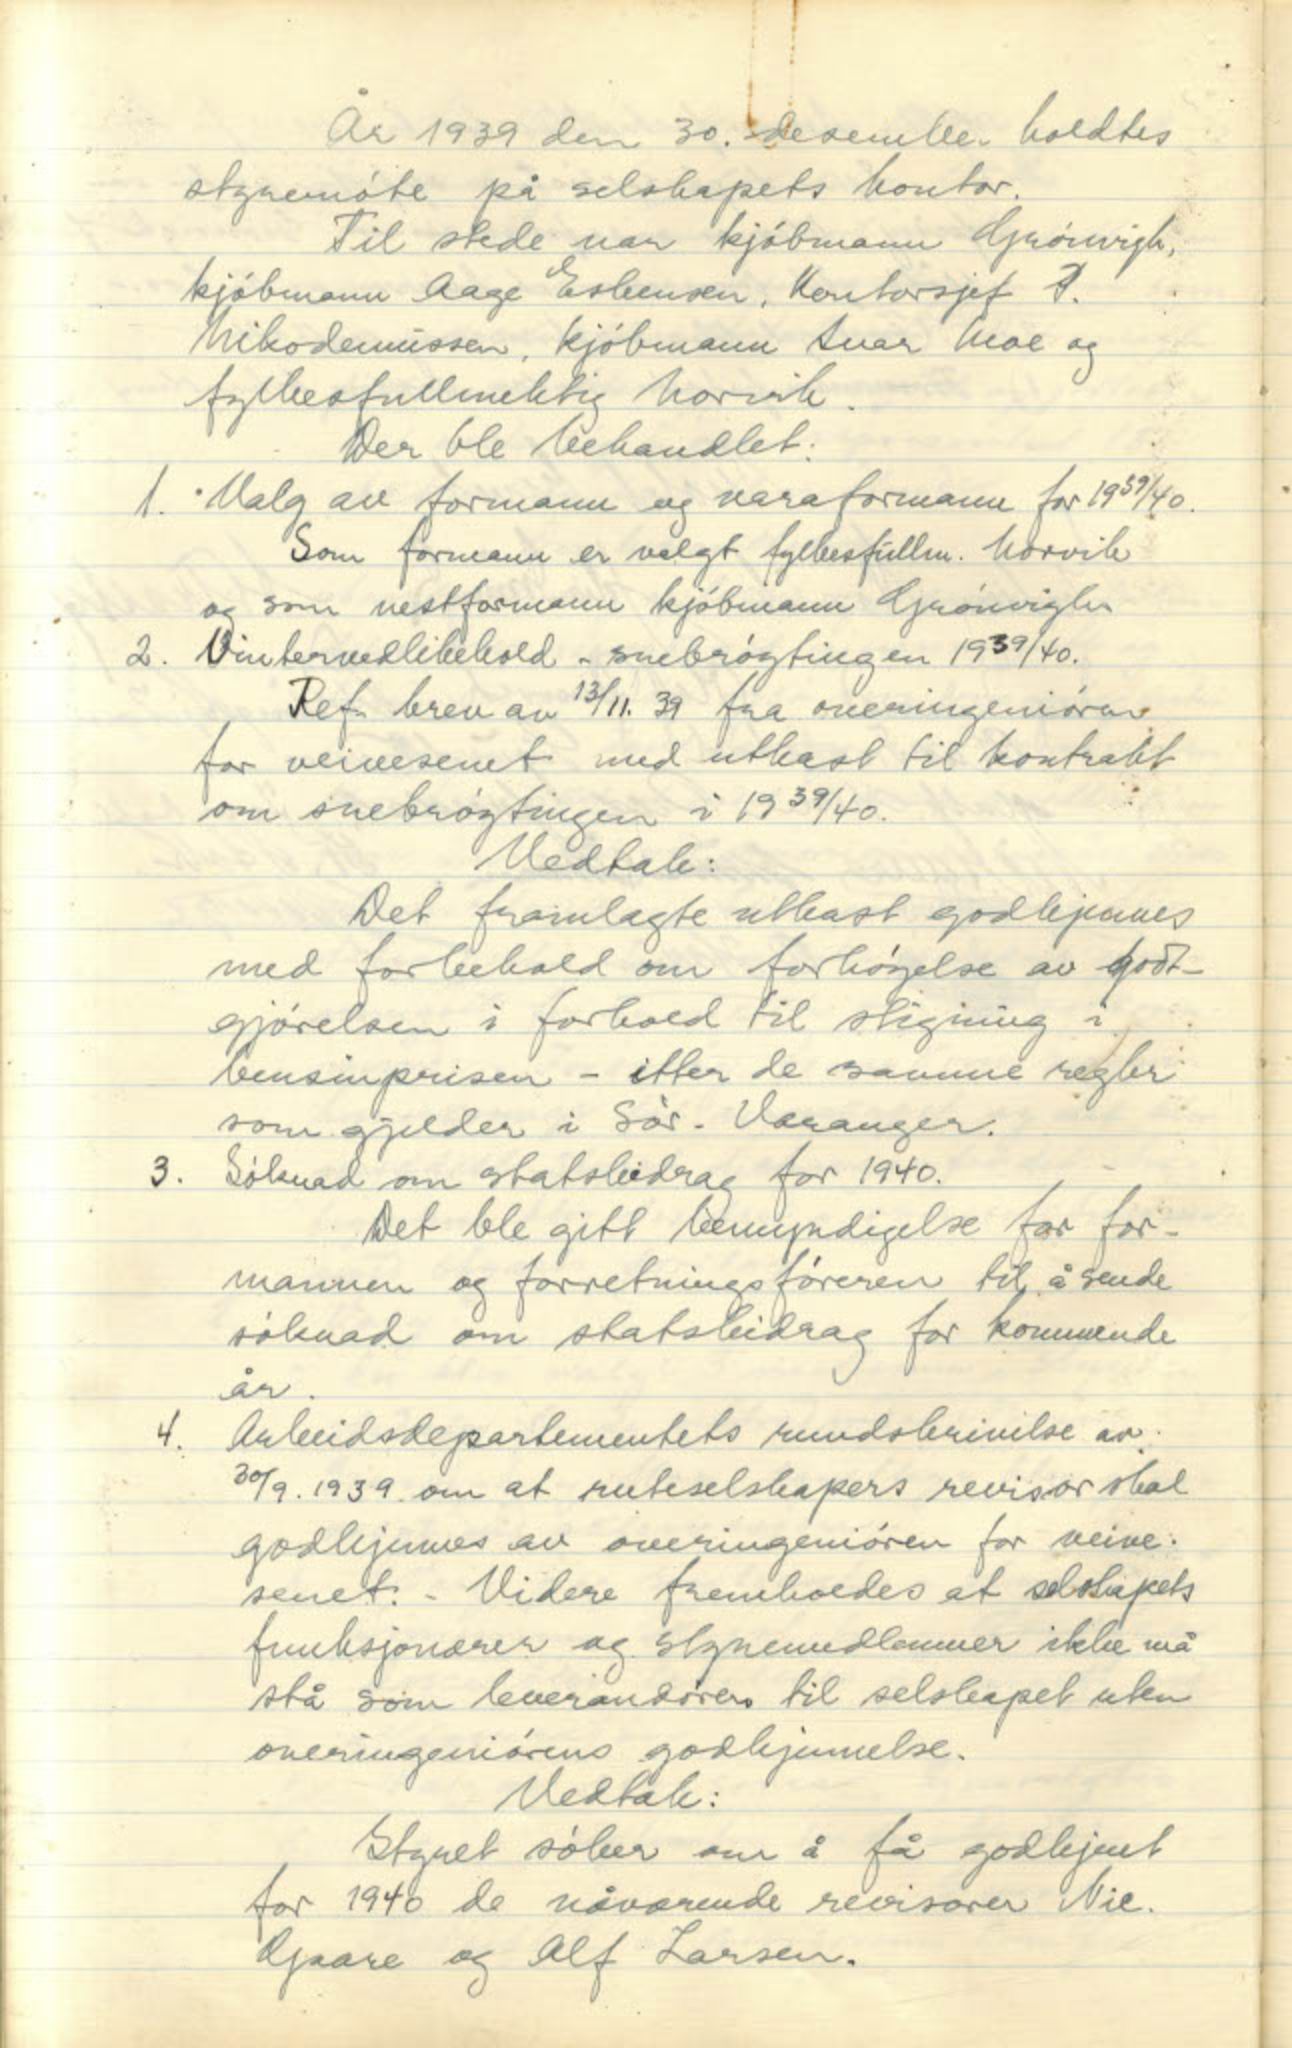 År 1939 den 30. desember holdtes
styremöte på selskapets kontor.
Til stede var kjöbmann Grönvigh,
kjöbmann Aage Esbensen, Kontorsjef P.
Nikodemussen, kjöbmann Ivar Moe og
fylkesfullmektig Norvik.
Der ble behandlet:
1. Valg av formann og varaformann for 1939/40.
Som formann er valgt fylkesfullm. Norvik
og som nestformann kjöbmann Grönvigh
2. Vintervedlikehold - snebröytingen 1939/40.
Ref. brev av 13/11. 39 fra overingeniören
for veivesenet med utkast til kontrakt
om snebröytingen i 1939/40.
Vedtak:
Det framlagte utkast godkjennes
med forbehold om forhöyelse av godt-
gjörelsen i forhold til stigning i
bensinprisen - etter de samme regler
som gjelder i Sör-Varanger.
3. Söknad om statsbidrag for 1940.
Det ble gitt bemyndigelse for for-
mannen og forretningsföreren til å sende
söknad om statsbidrag for kommende
år.
4. Arbeidsdepartementets rundskrivelse av
30/9. 1939 om at ruteselskapers revisor skal
godkjennes av overingeniören for veive-
senet. - Videre fremholdes at selskapets
funksjonærer og styremedlemmer ikke må
stå som leverandörer til selskapet uten
overingeniörens godkjennelse.
Vedtak:
Styret söker om å få godkjent
for 1940 de nåværende revisorer Nic.
Gjaare og Alf Larsen.